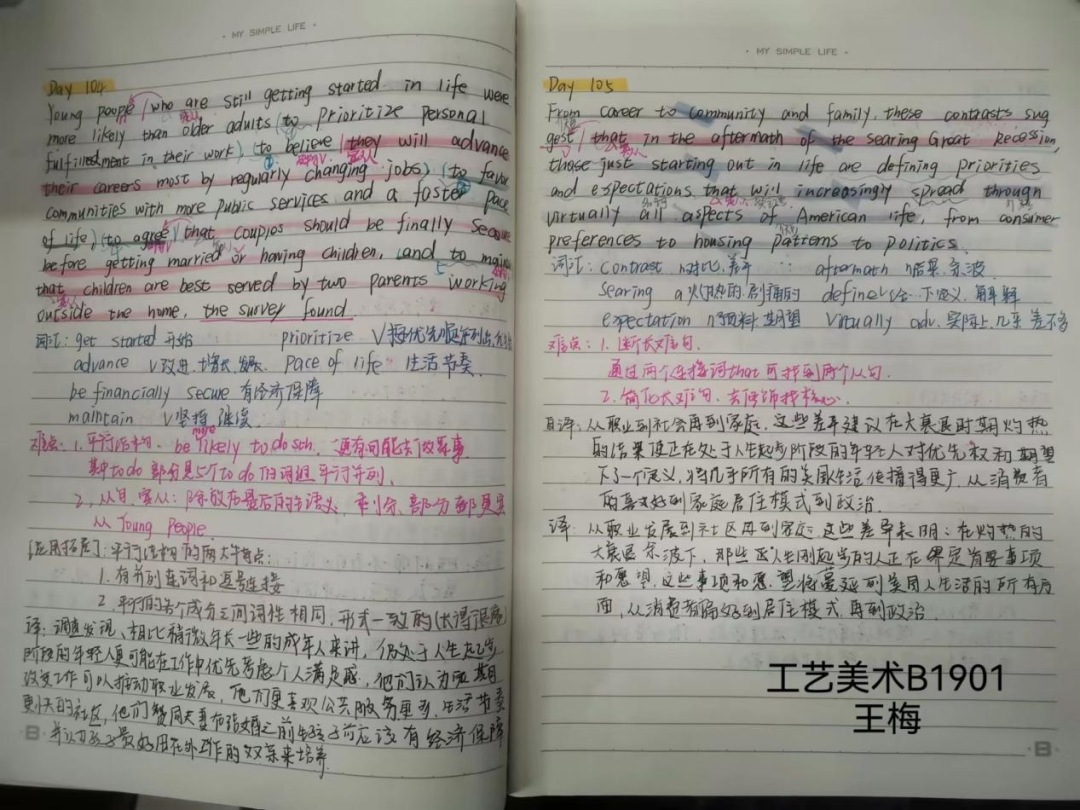 · MY SIMPLE LIFE ·
Day 104
Young people who are still getting started in life were
more likely than older adults (to prioritize personal
fulfillment in their work) (to believe they will advance
their careers most by regularly changing jobs) (to favor
communities with more public services and a faster pace
of life) (to agree that couples should be finally secure
before getting married or having children, (and to main
that children are best served by two parents working
outside the home, the survey found
词汇: get started 开始 prioritize V 按优先顺序列出
advance v 改进、增长、发展 pace of life 生活节奏
be financially secure 有经济保障
maintain V 坚持、继续
难点: 1. 平行结构. be more likely to do sth. 更有可能去做某事
其中to do 部分是5个to do 的词组平行并列.
2. 从
从 Young People
平行结构的两大特点:
1. 有并列连词和逗号连接
2. 平行的各个成分之间词性相同, 形式一致的 (长得很像)
译: 调查发现、相比稍微年长一些的成年人来讲, 仍处于人生起步
阶段的年轻人更可能在工作中优先考虑个人满足感, 他们认为
改变工作可以推动职业发展, 他们更喜欢公共服务更多, 生活节奏
更快的社区, 他们赞同夫妻在结婚之前生孩子前应该有经济保障
并认为孩子最好用在外工作的双亲来培养
B
· MY SIMPLE LIFE ·
Day 105
From career to community and family, these contrasts sug
gest that in the aftermath of the searing Great Recession,
those just starting out in life are defining priorities
and expectations that will increasingly spread through
virtually all aspects of American life, from consumer
preferences to housing patterns to politics.
词汇: contrast n 对比、差异 aftermath n 后果、余波
searing a 火热的、剧痛的 define v 给…下定义、解释
expectation n 预料、期望 virtually adv. 实际上、几乎、差不多
难点: 1. 断长难句.
通过两个连接词that 可找到两个从句.
2. 简化长难句. 去修饰找核心.
自译: 从职业到社会再到家庭, 这些差异建议在大衰退时期灼热
的结果使正在处于人生起步阶段的年轻人对优先权和期望
下了一个定义, 将几乎所有的美国生活传播得更广, 从消费者
的喜好到家庭居住模式到政治.
译: 从职业发展到社区再到家庭, 这些差异表明: 在灼热的
大衰退余波下, 那些正人生刚起步的人正在界定首要事项
和愿望, 这些事项和愿望将蔓延到美国人生活的所有方
面, 从消费者偏好到居住模式, 再到政治.
工艺美术B1901
王梅
B